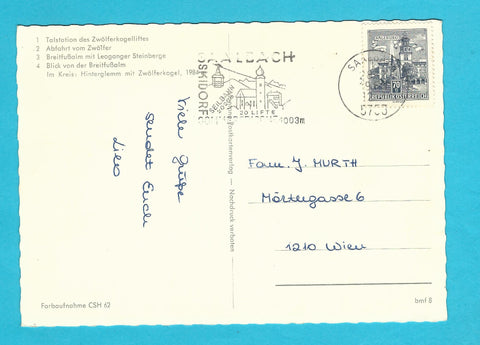 1 Talstation des Zwölferkogelliftes
2 Abfahrt vom Zwölfer
3 Breitfußalm mit Leoganger Steinberge
4 Blick von der Breitfußalm
Im Kreis: Hinterglemm mit Zwölferkogel, 198
SAALBACH
SKIDORF
SEILBAHN
20 LIFTE
1003m
SA
5753
REPUBLIK ÖSTERREICH
Viele Grüße
sendet Euch
Fam. J. MURTH
Mörtergasse 6
1210 Wien
postkartenverlag — Nachdruck verboten
Farbaufnahme CSH 62
bmf B